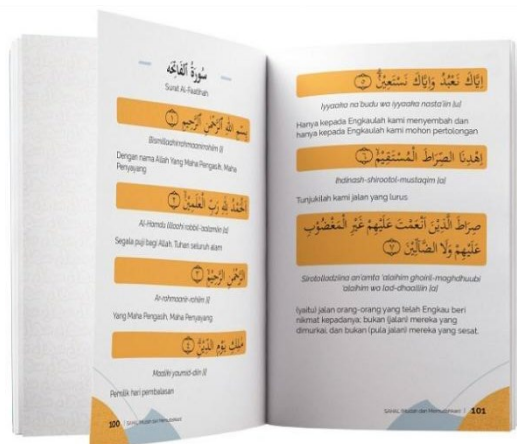 سُورَةُ الْفَاتِحَة
Surat Al-Faatihah
بِسْمِ اللهِ الرَّحْمٰنِ الرَّحِيْمِ ۝١
Bismillaahirrohmaanirrohiim (i)
Dengan nama Allah Yang Maha Pengasih, Maha
Penyayang
اَلْحَمْدُ لِلّٰهِ رَبِّ الْعٰلَمِيْنَ ۝٢
Al-Hamdu lillaahi robbil-'aalamiin (a)
Segala puji bagi Allah, Tuhan seluruh alam
الرَّحْمٰنِ الرَّحِيْمِ ۝٣
Ar-rohmaanir-rohiim (i)
Yang Maha Pengasih, Maha Penyayang
مٰلِكِ يَوْمِ الدِّيْنِ ۝٤
Maaliki yaumid-diin (i)
Pemilik hari pembalasan
100 / SAHAL Mudah dan Memudahkan
اِيَّاكَ نَعْبُدُ وَاِيَّاكَ نَسْتَعِيْنُ ۝٥
Iyyaaka na'budu wa iyyaaka nasta'iin (u)
Hanya kepada Engkaulah kami menyembah dan
hanya kepada Engkaulah kami mohon pertolongan
اِهْدِنَا الصِّرَاطَ الْمُسْتَقِيْمَ ۝٦
Ihdinash-shirootol-mustaqiim (a)
Tunjukilah kami jalan yang lurus
صِرَاطَ الَّذِيْنَ اَنْعَمْتَ عَلَيْهِمْ غَيْرِ الْمَغْضُوْبِ
عَلَيْهِمْ وَلَا الضَّاۤلِّيْنَ ۝٧
Sirotolladziina an'amta 'alaihim ghoiril-maghdhuubi
'alaihim wa lad-dhaalliin (a)
(yaitu) jalan orang-orang yang telah Engkau beri
nikmat kepadanya; bukan (jalan) mereka yang
dimurkai, dan bukan (pula jalan) mereka yang sesat.
SAHAL Mudah dan Memudahkan / 101